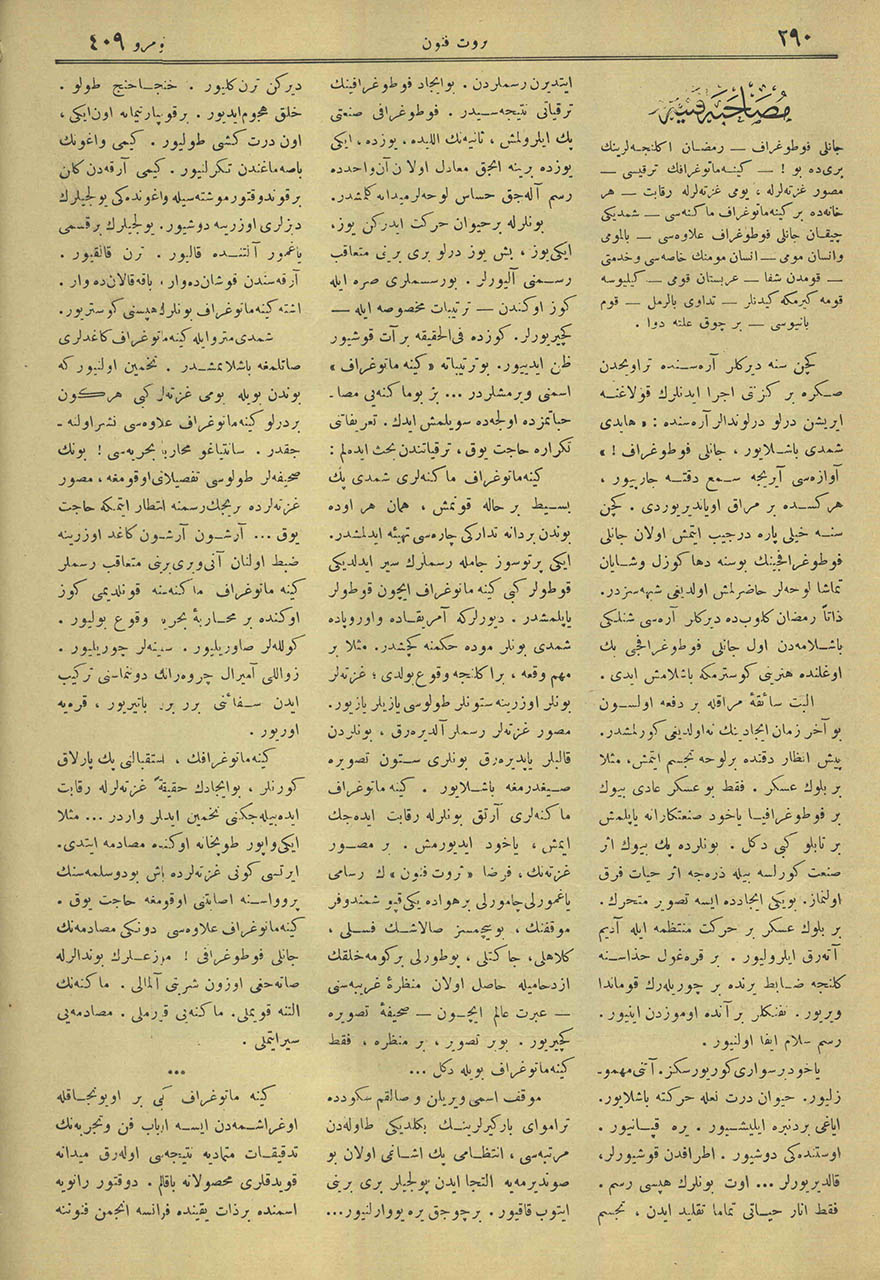 ٢٩٠
ثروت فنون
نومرو ٤٠٩
مصاحبۀ فنیه
جانلی فوطوغراف — رمضان اکلنجه‌لرینك
بری‌ده بو ! — کینه‌ماتوغرافك ترقیسی —
مصور غزته‌لرله ، یومی غزته‌لرله رقابت — هر
خانه‌ده بر کینه‌ماتوغراف ماکنه‌سی — شمدیکی
چیقان جانلی فوطوغراف علاوه‌سی — بالمومی
وانسان مومی — انسان مومنك خاصه‌سی وخدمتی
— قومدن شفا — عربستان قومی — کیلیوسه
قومه کیرمکه کیدنلر — تداوی بالرمل — قوم
بانیوسی — بر چوق علته دوا .
کچن سنه دیرکلر آره‌سنده تراویحدن
صکره بر کزنتی اجرا ایدنلرك قولاغنه
ایریشن درلو درلوندالر آره‌سنده : « هایدی
شمدی باشلایور ، جانلی فوطوغراف ! »
آوازه‌سی آیریجه سمع دقته چارپیور ،
هرکسده بر مراق اویاندیریوردی . کچن
سنه خیلی پاره درجیب ایتمش اولان جانلی
فوطوغرافجینك بوسنه دها کوزل وشایان
تماشا لوحه‌لر حاضرلمش اولدیغی شبهه‌سزدر.
ذاتاً رمضان کلوب‌ده دیرکلر آره‌سی شنلکی
باشلامه‌دن اول جانلی فوطوغرافجی بك
اوغلنده هنرینی کوسترمکه باشلامش ایدی .
البت سائقۀ مراقله بر دفعه اولسون
بو آخر زمان ایجادینك نه‌اولدیغی کورلمشدر.
پیش انظار دقتده برلوحه تجسم ایتمش، مثلا
بر بلوك عسکر . فقط بو عسکر عادی بیوك
بر فوطوغرافیا یاخود صنعتکارانه یاپلمش
بر تابلو کبی دکل . بونلرده پك بیوك اثر
صنعت کورلسه بیله ذره‌جه اثر حیات فرق
اولنماز. بویکی ایجادده ایسه تصویر متحرك.
بر بلوك عسکر بر حرکت منتظمه ایله آدیم
آته‌رق ایلرولیور . بر قره‌غول حذاسنه
کلنجه ضابط یرنده بر چوریله‌رك قوماندا
ویریور . تفنکلر بر آنده اوموزدن اینیور .
رسم سلام ایفا اولنیور .
یاخود برسواری کوریورسکز. آتنی مهمو-
زلیور. حیوان درت نعله حرکته باشلایور.
ایاغی بردنبره ایلیشیور . یره قپانیور .
اوستنده‌کی دوشیور . اطرافدن قوشیورلر،
قالدیریورلر ... اوت بونلرك هپسی رسم .
فقط آثار حیاتی تماما تقلید ایدن ، تجسم
ایتدیرن رسملردن. بوایجاد فوطوغرافینك
ترقیاتی نتیجه‌سیدر. فوطوغرافی صنعتی
پك ایلرولمش ، ثانیه‌نك اللیده . یوزده ، ایکی
یوزده برینه انجق معادل اولان آن‌واحدده
رسم آله‌جق حساس لوحه‌لر میدانه کلمشدر.
بونلرله برحیوان حرکت ایدرکن یوز،
ایکی‌یوز ، بش یوز درلو بری برینی متعاقب
رسمنی آلیورلر. بورسملری صره ایله
کوز اوکندن — ترتیبات مخصوصه ایله —
کچیریورلر. کوزده فی‌الحقیقه بر آت قوشیور
ظن ایدییور. بوترتیباته « کینه ماتوغراف »
اسمنی ویرمشلردر ... بز بوماکنه‌یی مصا-
حباتمزده اولجه‌ده سویلمش ایدك . تعریفاتی
تکراره حاجت یوق ، ترقیاتندن بحث ایده‌لم :
کینه‌ماتوغراف ماکنه‌لری شمدی پك
بسیط بر حاله قونمش ، همان هر اوده
بوندن بردانه تدارکی چاره‌سی تهیئه ایدلمشدر.
ایکی پرتوسوز جامله رسملرك سیر ایدلدیکی
قوطولر کبی کینه ماتوغراف ایچون قوطولر
یاپلمشدر . دیورلرکه آمریقاده واوروپاده
شمدی بونلر موده حکمنه کچمشدر. مثلا بر
مهم وقعه ، براکلنجه وقوع بولدی ؛ غزته‌لر
بونلر اوزرینه ستونلر طولوسی یازیلر یازیور.
مصور غزته‌لر رسملر آلدیره‌رق ، بونلردن
قالبلر یاپدیره‌رق بونلری ستون تصویره
صیغدرمغه باشلایور . کینه ماتوغراف
ماکنه‌لری آرتق بونلرله رقابت ایده‌جك
ایمش ، یاخود ایدیورمش . بر مصور
غزته‌نك ، فرضا « ثروت فنون » ك رسامی
یاغمورلی چامورلی برهواده یدی‌قپو شمندوفر
موقفنك ، بوبیچیمسز صالاشك فسلی ،
کلاهلی ، جاکتلی ، پوطورلی برکومه خلقك
ازدحامیله حاصل اولان منظرۀ غریبه‌سی
— عبرت عالم ایچون — صحیفۀ تصویره
کچیریور. بوبر تصویر ، بر منظره ، فقط
کینه‌ماتوغراف بویله دکل ...
موقف اسمی ویریلان و صالقم سکودده
تراموای بارکیرلرینك بکلدیکی طاوله‌دن
مرتبه‌سی ، انتظامی پك اشاغی اولان بو
صوندیرمه‌یه التجا ایدن یولجیلر بری برینی
ایتوب قاقیور. برچوجق یره یووارلنیور...
دیرکن ترن کلیور . خنجاخنج طولو .
خلق هجوم ایدیور. برقومپارتیمانه اون‌ایکی ،
اون درت کشی طولیور. کیمی واغونك
باصه‌ماغندن تکرلنیور. کیمی آرقه‌دن کان
برقوندوقتور موشته‌سیله واغونده‌کی یولجیلرك
دیزلری اوزرینه دوشیور. یولجیلرك برقسمی
یاغمور آلتنده قالیور . ترن قالقیور .
آرقه‌سندن قوشان‌ده‌وار ، باقه‌قالان‌ده وار .
اشته کینه‌ماتوغراف بونلرك هپسنی کوستریور.
شمدی متروایله کینه‌ماتوغراف کاغدلری
صاتلمغه باشلامشدر . تخمین اولنیور که
بوندن بویله یومی غزته‌لر کبی هرکون
بردرلو کینه‌ماتوغراف علاوه‌سی نشراولنه-
جقدر. سانتیاغو محاربۀ بحریه‌سی ! بونك
صحیفه‌لر طولوسی تفصیلاتی اوقومغه ، مصور
غزته‌لرده بریجك رسمنه انتظار ایتمکه حاجت
یوق ... آرشون آرشون کاغد اوزرینه
ضبط اولنان آنی‌وبری‌برینی متعاقب رسملر
کینه ماتوغراف ماکنه‌سنه قونلدیمی کوز
اوکنده بر محاربۀ بحریه وقوع بولیور .
کولله‌لر صاوریلیور . سینه‌لر چوریلیور .
زواللی آمیرال چروه‌رانك دونمه‌سنی ترکیب
ایدن سفائنی برر برر باتیریور ، قره‌یه
اوریور.
کینه‌ماتوغرافك ، استقبالنی پك پارلاق
کورنلر ، بوایجادك حقیقةً غزته‌لرله رقابت
ایده‌بیله‌جکنی تخمین ایدنلر واردر ... مثلا
ایکی‌واپور طوپخانه اوکنده مصادمه ایتدی.
ایرتسی کونی غزته‌لرده باش بودوسلمه‌سنك
پروواسنه اصابتی اوقومغه حاجت یوق .
کینه‌ماتوغراف علاوه‌سی دونکی مصادمه‌نك
جانلی فوطوغرافی ! موزعلرك بوندالرله
صاته‌جغی اوزون شریتی آلمالی . ماکنه‌نك
التنه قویملی. ماکنه‌یی قیرملی . مصادمه‌یی
سیرایتملی .
...
کینه ماتوغراف کبی بر اویونجاقله
اوغراشمه‌دن ایسه ارباب فن وتجربه‌نك
تدقیقات متمادیه نتیجه‌سی اوله‌رق میدانه
قویدقلری محصولاته باقالم . دوقتور رانویه
اسمنده برذات یقینده فرانسه انجمن فنوننه